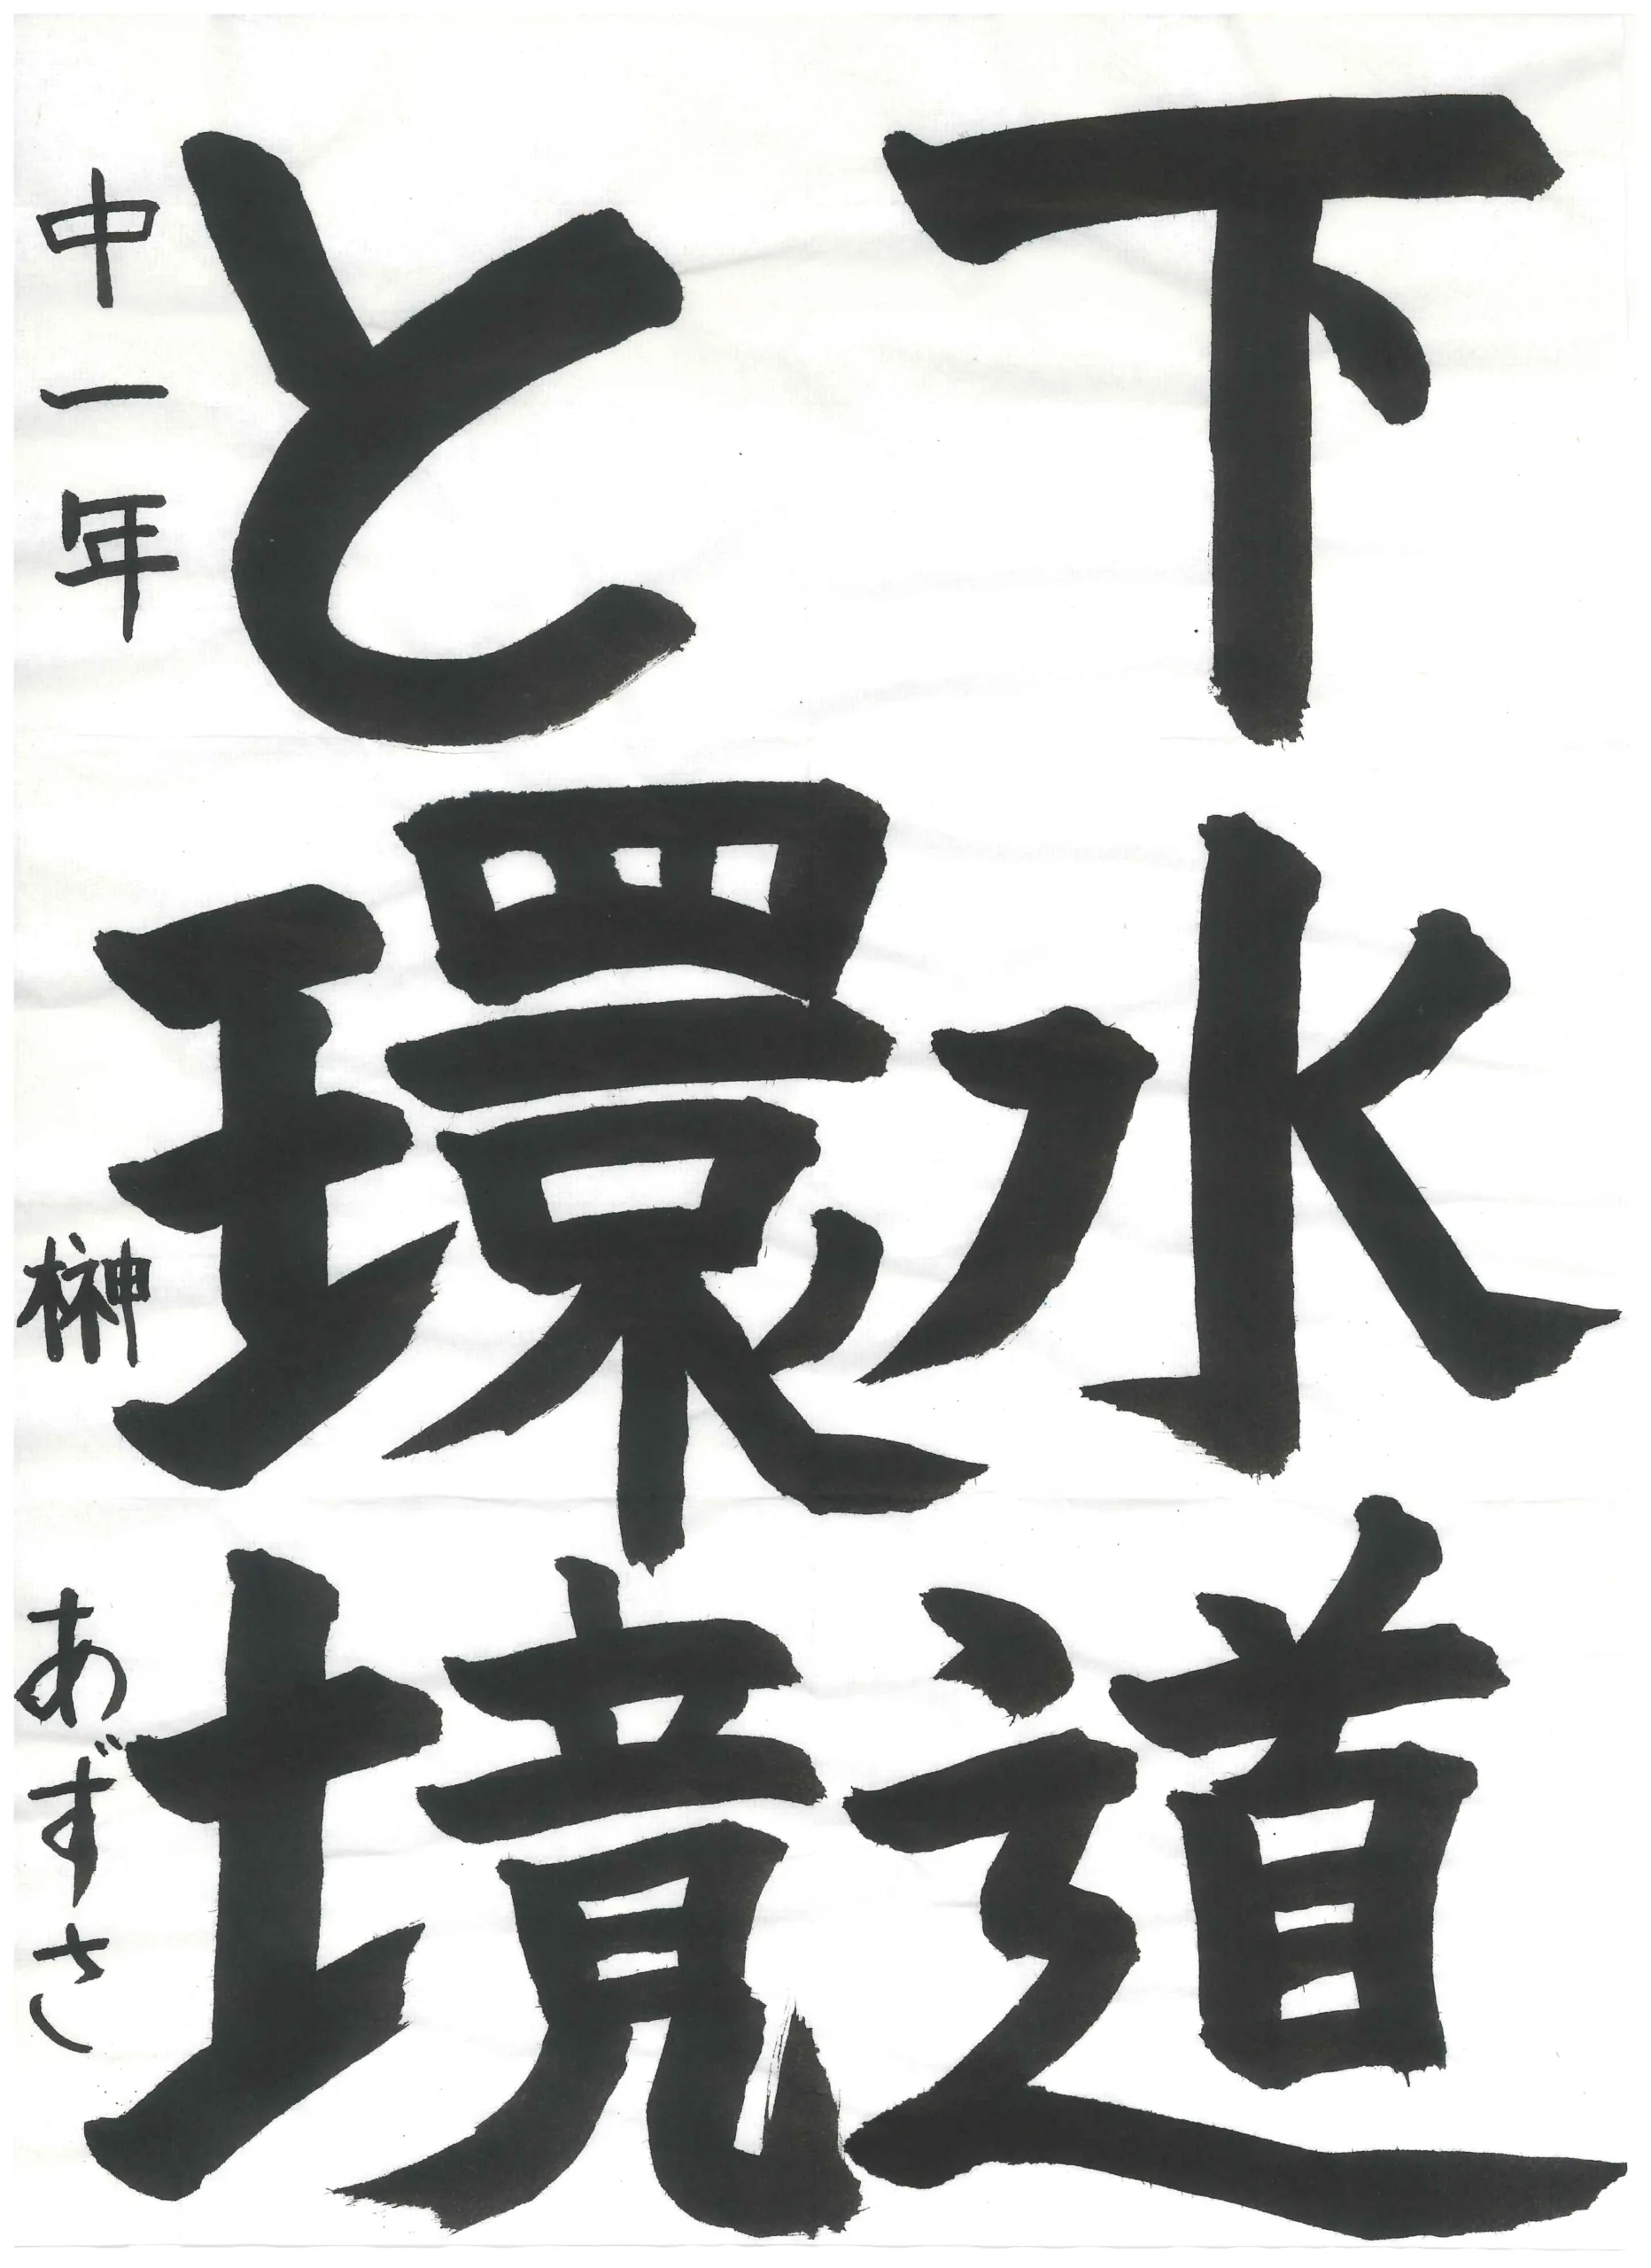 下水道
と環境
中一年 榊 あずさ